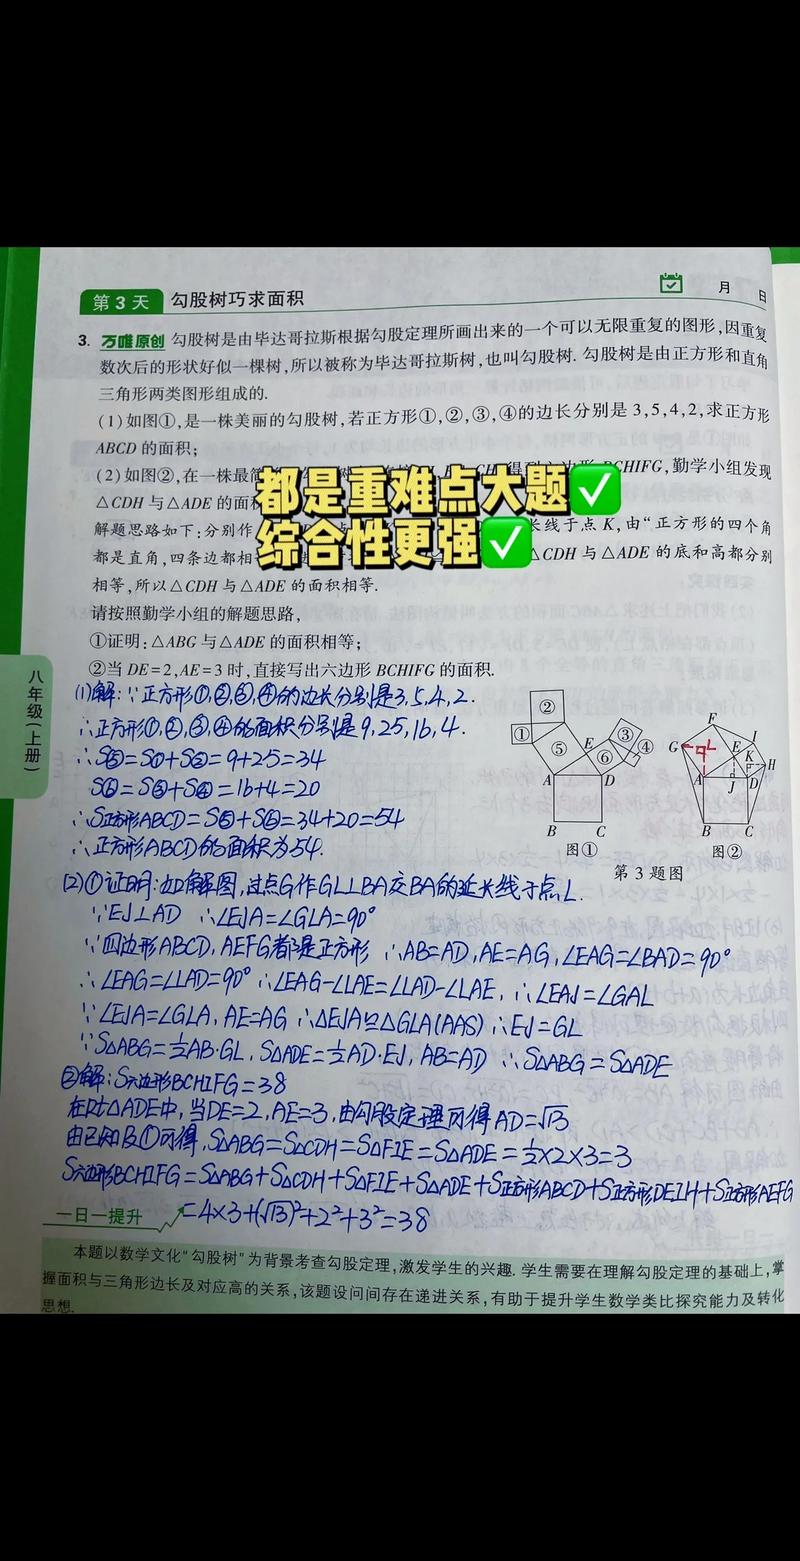 第3天 勾股树巧求面积
月 日
3. 万唯原创 勾股树是由毕达哥拉斯根据勾股定理所画出来的一个可以无限重复的图形,因重复
数次后的形状好似一棵树,所以被称为毕达哥拉斯树,也叫勾股树. 勾股树是由正方形和直角
三角形两类图形组成的.
(1)如图①,是一株美丽的勾股树,若正方形①,②,③,④的边长分别是3,5,4,2,求正方形
ABCD的面积;
(2)如图②,在一株最 BCHIFG,勤学小组发现
都是重难点大题✅
△CDH与△ADE的面
解题思路如下:分别作 长线于点K,由“正方形的四个角
综合性更强✅
都是直角,四条边都相 △CDH与△ADE的底和高都分别
相等,所以△CDH与△ADE的面积相等.
请按照勤学小组的解题思路,
①证明:△ABG与△ADE的面积相等;
②当DE=2,AE=3时,直接写出六边形BCHIFG的面积.
八年级(上册)
(1)解:∵正方形①,②,③,④的边长分别是3,5,4,2.
∴正方形①,②,③,④的面积分别是9,25,16,4.
∴S⑤=S①+S②=9+25=34
S⑥=S③+S④=16+4=20
∴S正方形ABCD=S⑤+S⑥=34+20=54
∴正方形ABCD的面积为54.
① ② ③ ④ ⑤ ⑥ E A D B C
图①
F I G L E K H A J D B C
图②
第3题图
(2)①证明:如解图,过点G作GL⊥BA交BA的延长线于点L.
∵EJ⊥AD ∴∠EJA=∠GLA=90°
∵四边形ABCD,AEFG都是正方形 ∴AB=AD,AE=AG,∠EAG=∠BAD=90°
∴∠EAG=∠LAD=90° ∴∠EAG-∠LAE=∠LAD-∠LAE,∴∠EAJ=∠GAL
∵∠EJA=∠GLA,AE=AG ∴△EJA≌△GLA(AAS),∴EJ=GL
∵S△ABG=½AB·GL,S△ADE=½AD·EJ,AB=AD ∴S△ABG=S△ADE
②解:S六边形BCHIFG=38
在Rt△ADE中,当DE=2,AE=3,由勾股定理可得AD=√13
由已知及①可得,S△ABG=S△CDH=S△FIE=S△ADE=½×2×3=3
S六边形BCHIFG=S△ABG+S△CDH+S△FIE+S△ADE+S正方形ABCD+S正方形DEIH+S正方形AEFG
=4×3+(√13)²+2²+3²=38
一日一提升
本题以数学文化“勾股树”为背景考查勾股定理,激发学生的兴趣. 学生需要在理解勾股定理的基础上,掌
握面积与三角形边长及对应高的关系,该题设问间存在递进关系,有助于提升学生数学类比探究能力及转化
思想.